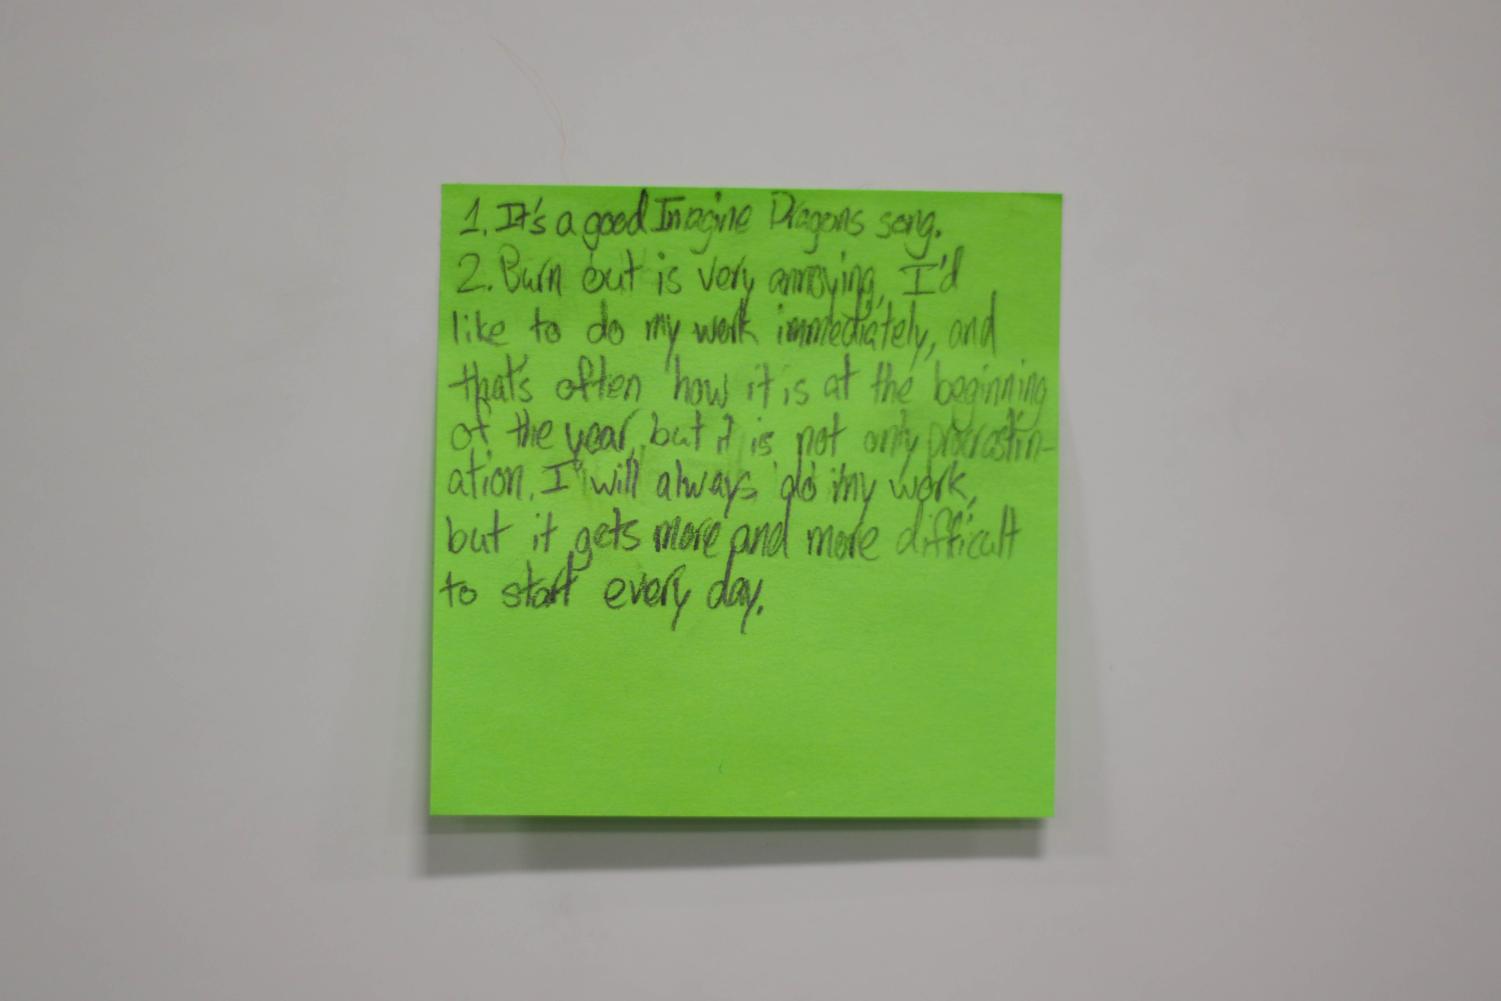 1. It's a good Imagine Dragons song.
2. Burn out is very annoying, I'd
like to do my work immediately, and
that's often how it is at the beginning
of the year, but it is not only procrastin-
ation. I will always do my work,
but it gets more and more difficult
to start every day.